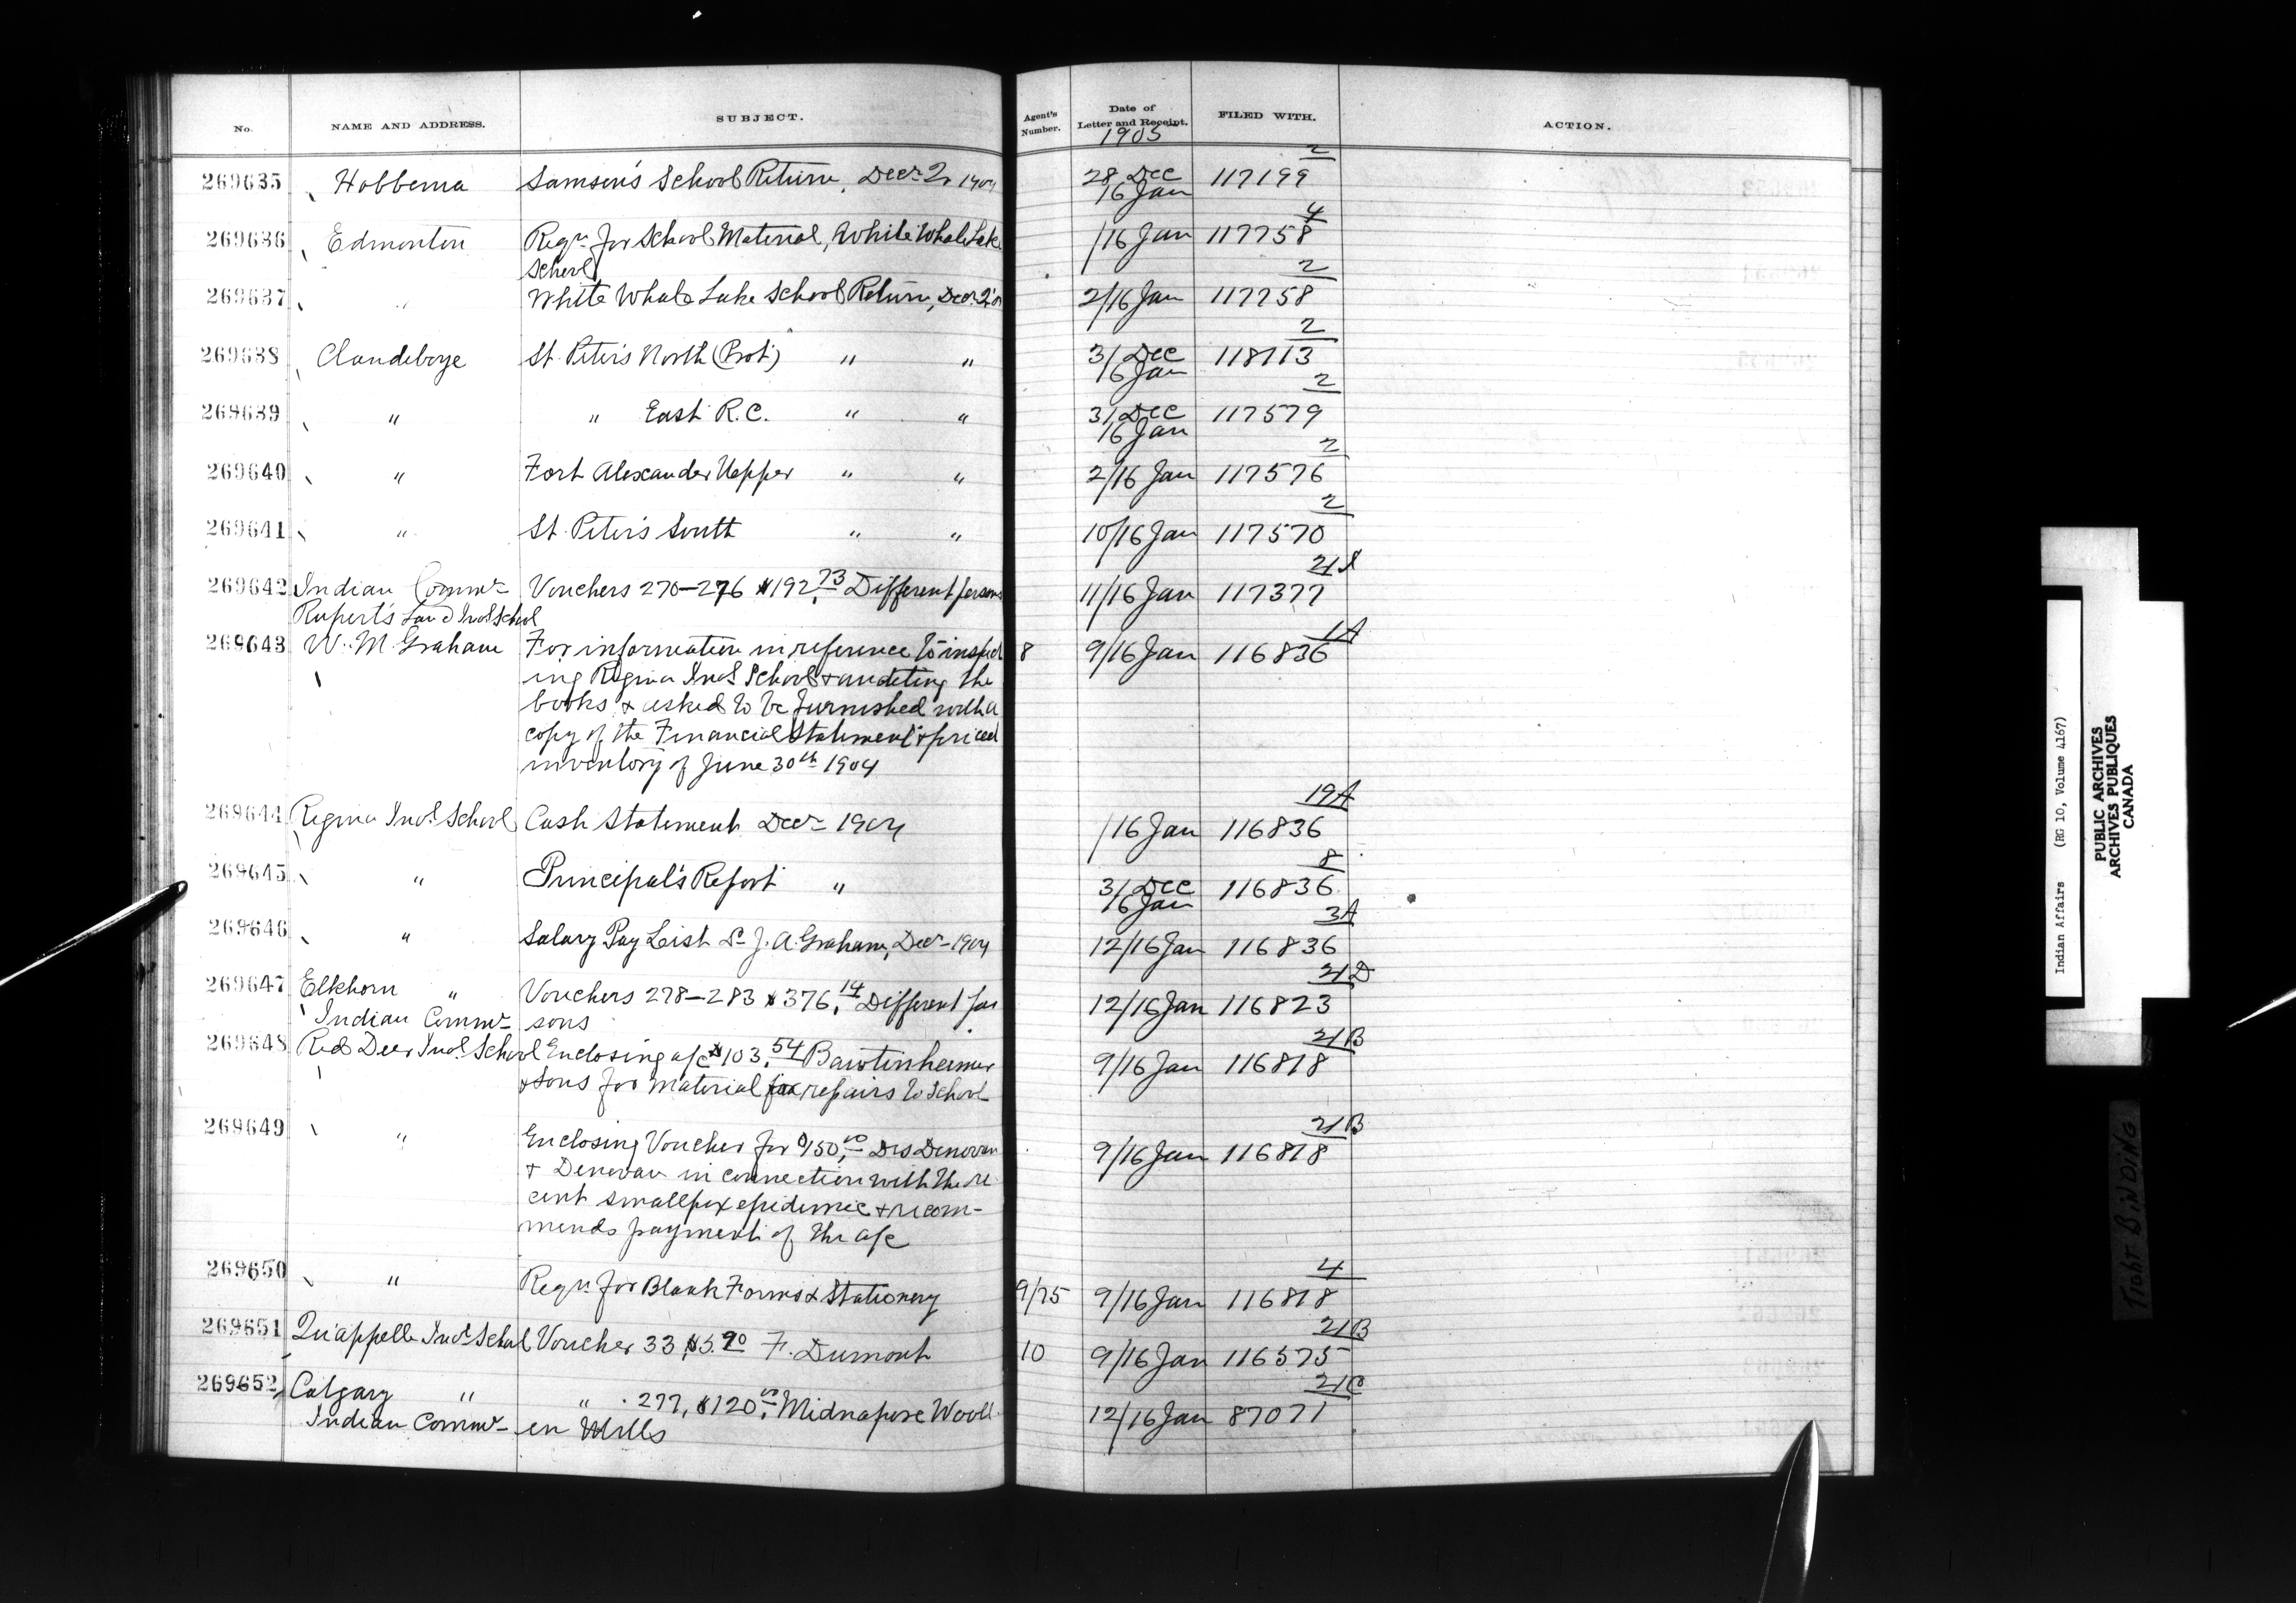 No. NAME AND ADDRESS. SUBJECT. Agent's Number. Date of Letter and Receipt. FILED WITH. ACTION.
1905
2
269635 Hobbema Samson's School Return, Decr Q 1904 28 Dec 117199
16 Jan
4
269636 Edmonton Reqn for School Material, White Whale Lake /16 Jan 117758
School
2
269637 " White Whale Lake School Return, Decr Q '04 2/16 Jan 117758
2
269638 Clandeboye St. Peter's North (Prot) " " 31 Dec 118113
16 Jan
2
269639 " " East R.C. " " 31 Dec 117579
16 Jan
2
269640 " Fort Alexander Upper " " 2/16 Jan 117576
2
269641 " St. Peter's South " " 10/16 Jan 117570
21
269642 Indian Commr Vouchers 270-276 $192.73 Different persons 11/16 Jan 117377
Rupert's Land Indl School
1A
269643 W. M. Graham For information in reference to inspect 8 9/16 Jan 116836
ing Regina Indl School & auditing the
books & asked to be furnished with a
copy of the Financial Statement & priced
inventory of June 30th 1904
19A
269644 Regina Indl School Cash Statement Decr 1904 /16 Jan 116836
8
269645 " Principal's Report " 31 Dec 116836
16 Jan
3A
269646 " Salary Pay List J. A. Graham, Decr 1904 12/16 Jan 116836
21D
269647 Elkhorn " Vouchers 278-283 $376.14 Different per 12/16 Jan 116823
Indian Commr sons
21B
269648 Red Deer Indl School Enclosing a/c $103.54 Bawtinheimer 9/16 Jan 116818
& Sons for material for repairs to School
21B
269649 " Enclosing Voucher for $150.00 Drs Denovan 9/16 Jan 116818
& Denovan in connection with the re
cent smallpox epidemic & recom-
mends payment of the a/c
4
269650 " Reqn for Blank Forms & Stationery 9/75 9/16 Jan 116818
21B
269651 Qu'appelle Indl School Voucher 33, $5.90 F. Dumont 10 9/16 Jan 116575
21C
269652 Calgary " " 277, $120.00, Midnapore Wooll 12/16 Jan 87071
Indian Commr en Mills
Indian Affairs (RG 10, Volume 4167)
PUBLIC ARCHIVES
ARCHIVES PUBLIQUES
CANADA
TIGHT BINDING